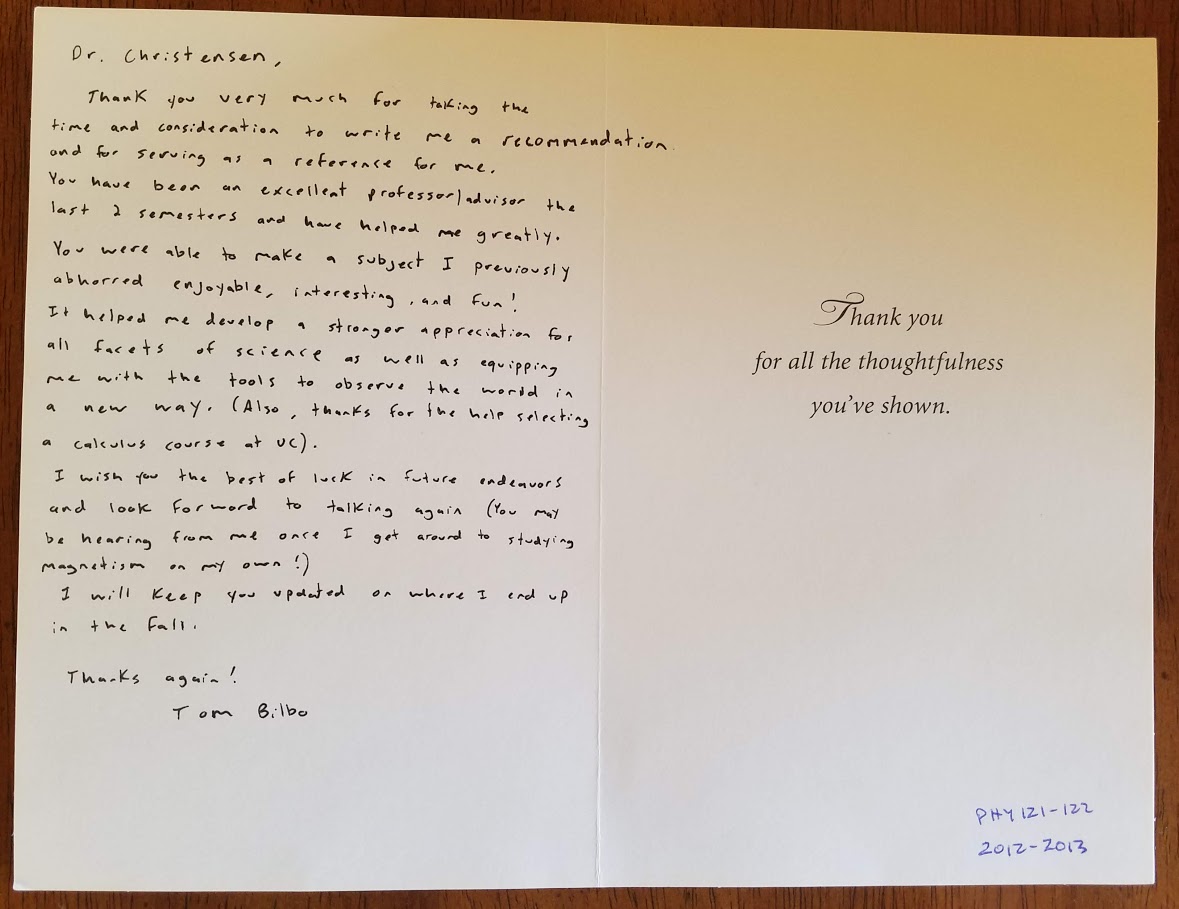 Dr. Christensen,
Thank you very much for taking the
time and consideration to write me a recommendation
and for serving as a reference for me.
You have been an excellent professor/advisor the
last 2 semesters and have helped me greatly.
You were able to make a subject I previously
abhorred enjoyable, interesting, and fun!
It helped me develop a stronger appreciation for
all facets of science as well as equipping
me with the tools to observe the world in
a new way. (Also, thanks for the help selecting
a calculus course at UC).
I wish you the best of luck in future endeavors
and look forward to talking again (You may
be hearing from me once I get around to studying
magnetism on my own!)
I will keep you updated on where I end up
in the fall.
Thanks again!
Tom Bilbo
Thank you
for all the thoughtfulness
you've shown.
PHY 121-122
2012-2013